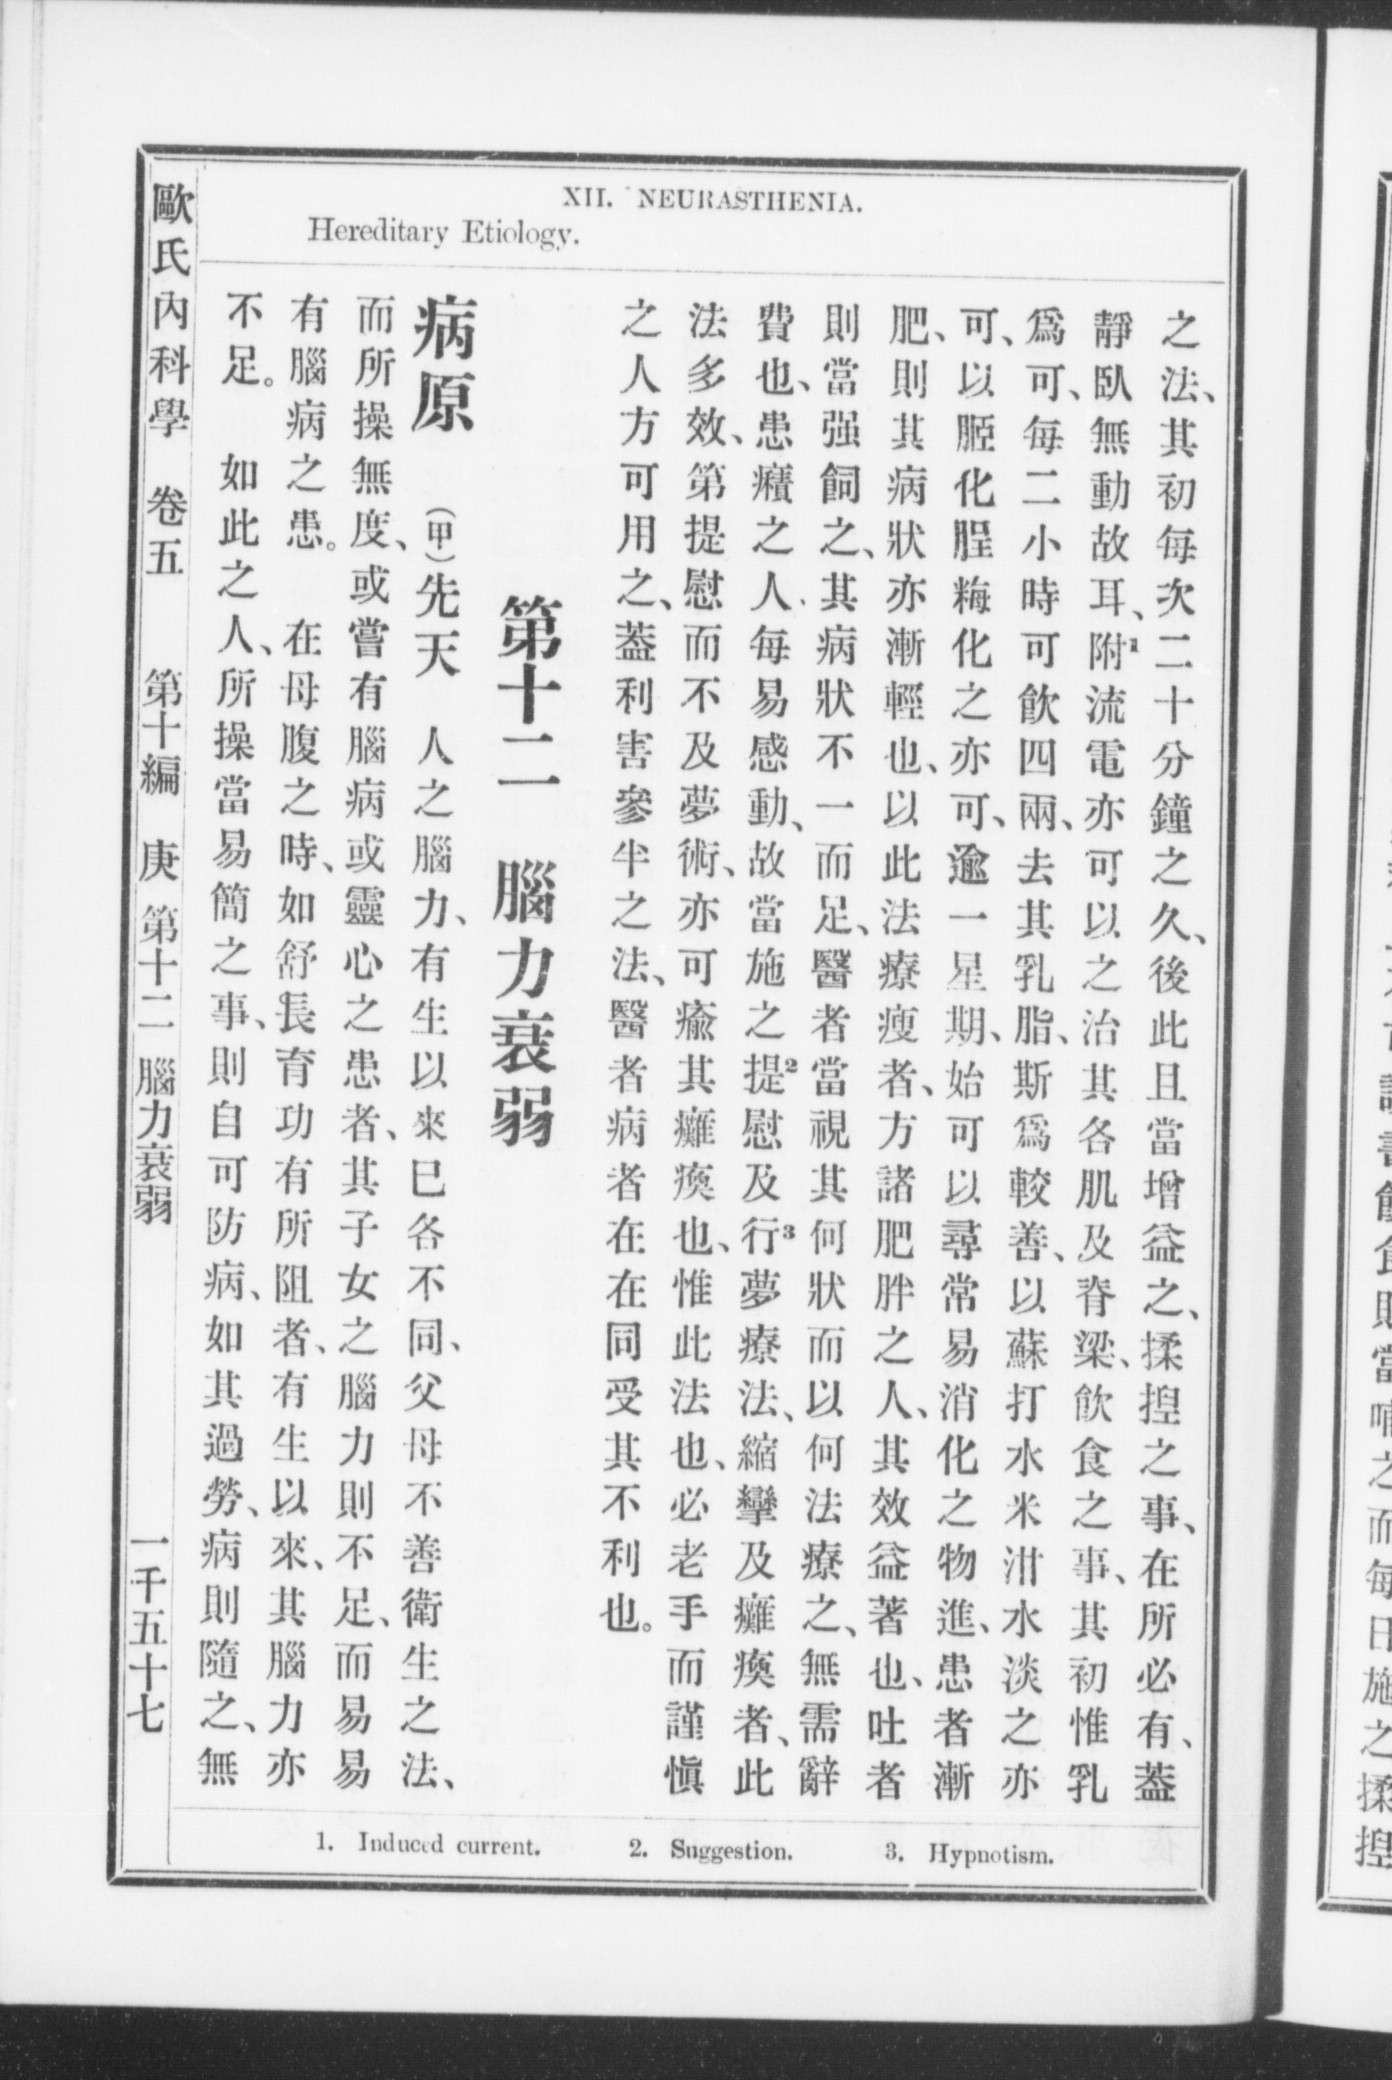 XII. NEURASTHENIA.
Hereditary Etiology.
之法、其初每次二十分鐘之久、後此且當增益之、揉揑之事、在所必有、蓋
靜臥無動故耳、附1流電亦可以之治其各肌及脊梁、飲食之事、其初惟乳
爲可、每二小時可飲四兩、去其乳脂、斯爲較善、以蘇打水米泔水淡之亦
可、以胵化脭粥化之亦可、逾一星期、始可以尋常易消化之物進、患者漸
肥、則其病狀亦漸輕也、以此法療瘦者、方諸肥胖之人、其效益著也、吐者
則當强飼之、其病狀不一而足、醫者當視其何狀而以何法療之、無需辭
費也、患癪之人、每易感動、故當施之提2慰及行3夢療法、縮攣及癱瘓者、此
法多效、第提慰而不及夢術、亦可瘉其癱瘓也、惟此法也、必老手而謹愼
之人方可用之、蓋利害參半之法、醫者病者在在同受其不利也。
第十二 腦力衰弱
病原 (甲)先天 人之腦力、有生以來已各不同、父母不善衛生之法、
而所操無度、或嘗有腦病或靈心之患者、其子女之腦力則不足、而易易
有腦病之患。 在母腹之時、如舒長育功有所阻者、有生以來、其腦力亦
不足。 如此之人、所操當易簡之事、則自可防病、如其過勞、病則隨之、無
歐氏內科學 卷五 第十編 庚 第十二 腦力衰弱 一千五十七
1. Induced current. 2. Suggestion. 3. Hypnotism.